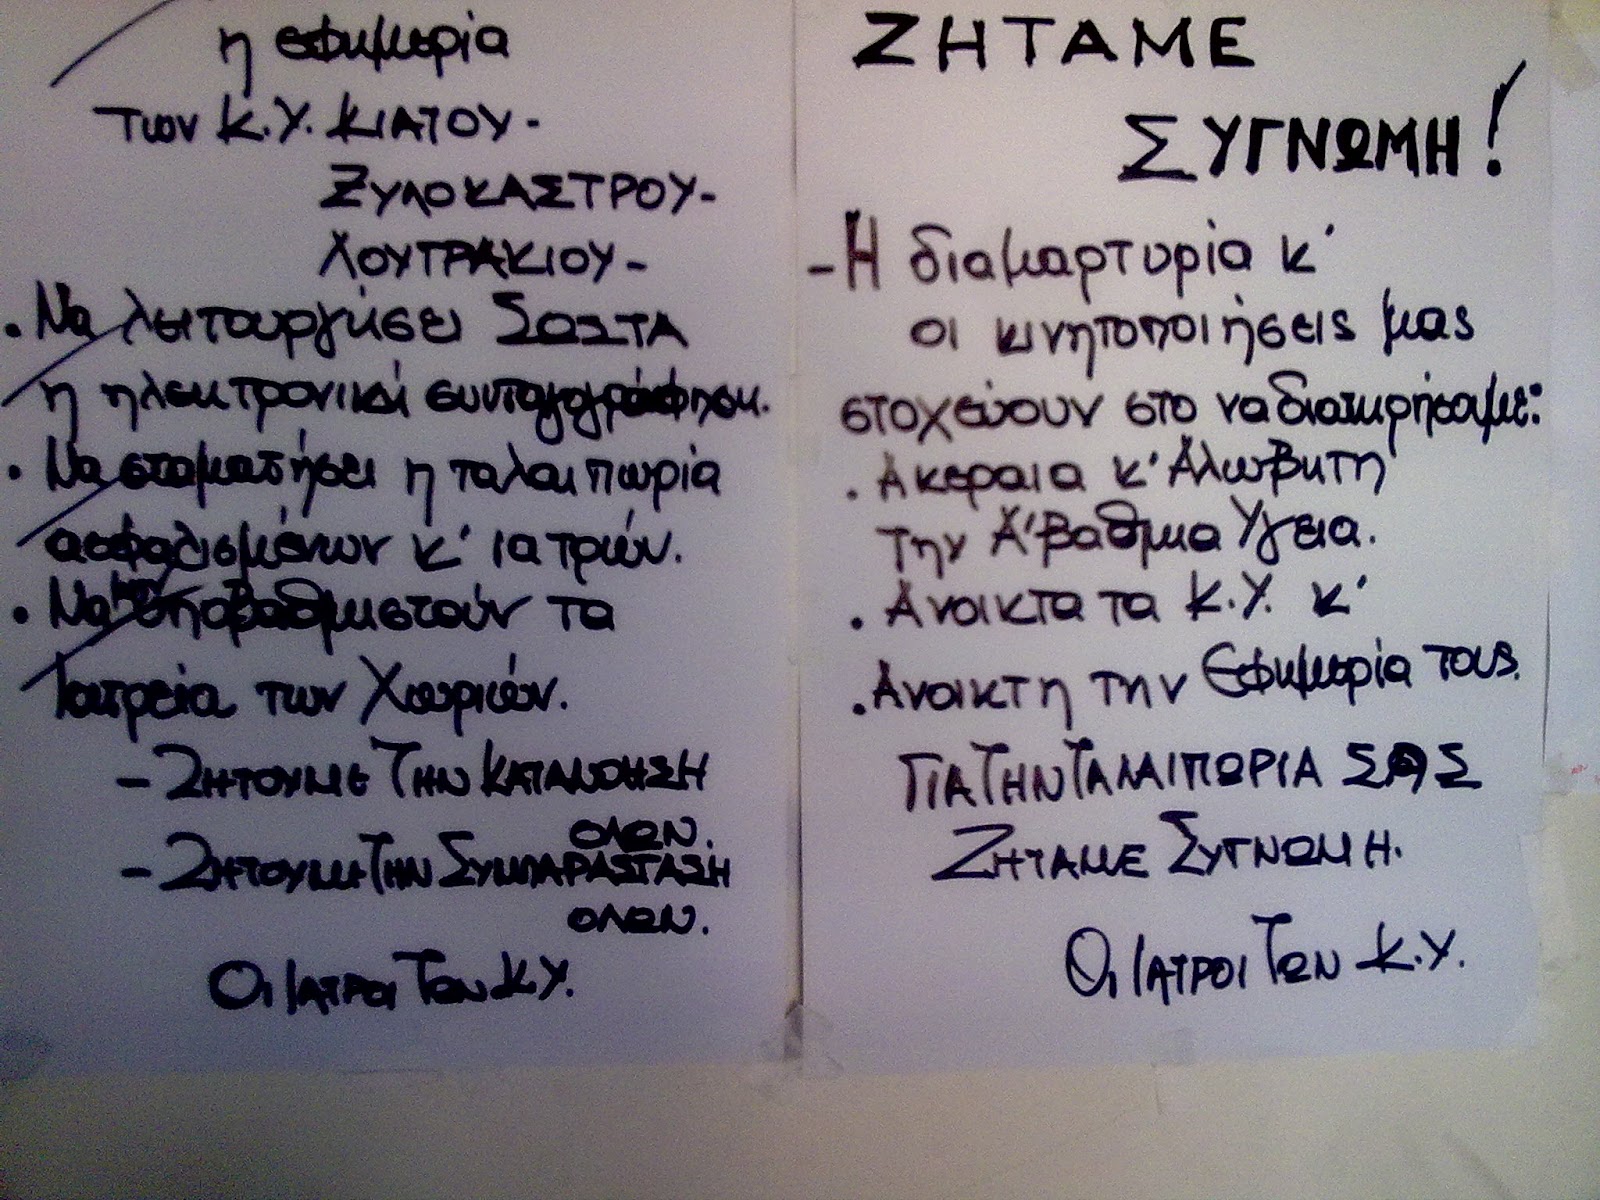 η εφημερία
των Κ.Υ. ΚΙΑΤΟΥ-
ΞΥΛΟΚΑΣΤΡΟΥ-
ΛΟΥΤΡΑΚΙΟΥ-
• Να λειτουργήσει ΣΩΣΤΑ
η ηλεκτρονική συνταγογράφηση.
• Να σταματήσει η ταλαιπωρία
ασφαλισμένων κ' ιατρών.
• Να μην υποβαθμιστούν τα
Ιατρεία των Χωριών.
- ΖΗΤΟΥΜΕ ΤΗΝ ΚΑΤΑΝΟΗΣΗ
ΟΛΩΝ.
- ΖΗΤΟΥΜΕ ΤΗΝ ΣΥΜΠΑΡΑΣΤΑΣΗ
ΟΛΩΝ.
ΟΙ ΙΑΤΡΟΙ ΤΩΝ Κ.Υ.
ΖΗΤΑΜΕ
ΣΥΓΝΩΜΗ!
- Η διαμαρτυρία κ'
οι κινητοποιήσεις μας
στοχεύουν στο να διατηρήσουμε:
. Ακεραια κ' Αλωβητη
την Α' βαθμια Υγεια.
. Ανοικτα τα Κ.Υ. κ'
. Ανοικτη την Εφημερία τους.
ΓΙΑ ΤΗΝ ΤΑΛΑΙΠΩΡΙΑ ΣΑΣ
ΖΗΤΑΜΕ ΣΥΓΝΩΜΗ.
ΟΙ ΙΑΤΡΟΙ ΤΩΝ Κ.Υ.